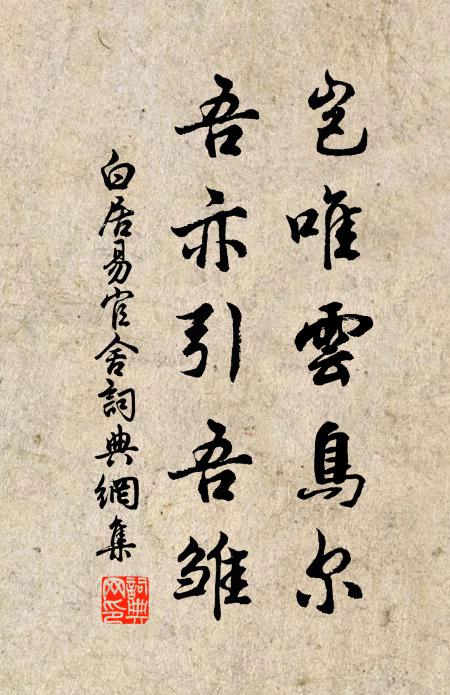 岂唯雲鳥尔
吾亦引吾雛
白居易官舍詞典網集
詞典网印